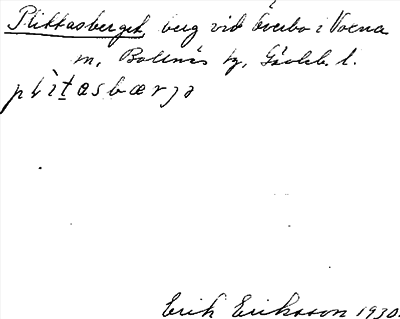 Plittasberget, berg vid Överbo i Voxna
m, Bollnäs tg, Gävleb. l.
Erik Eriksson 1930.